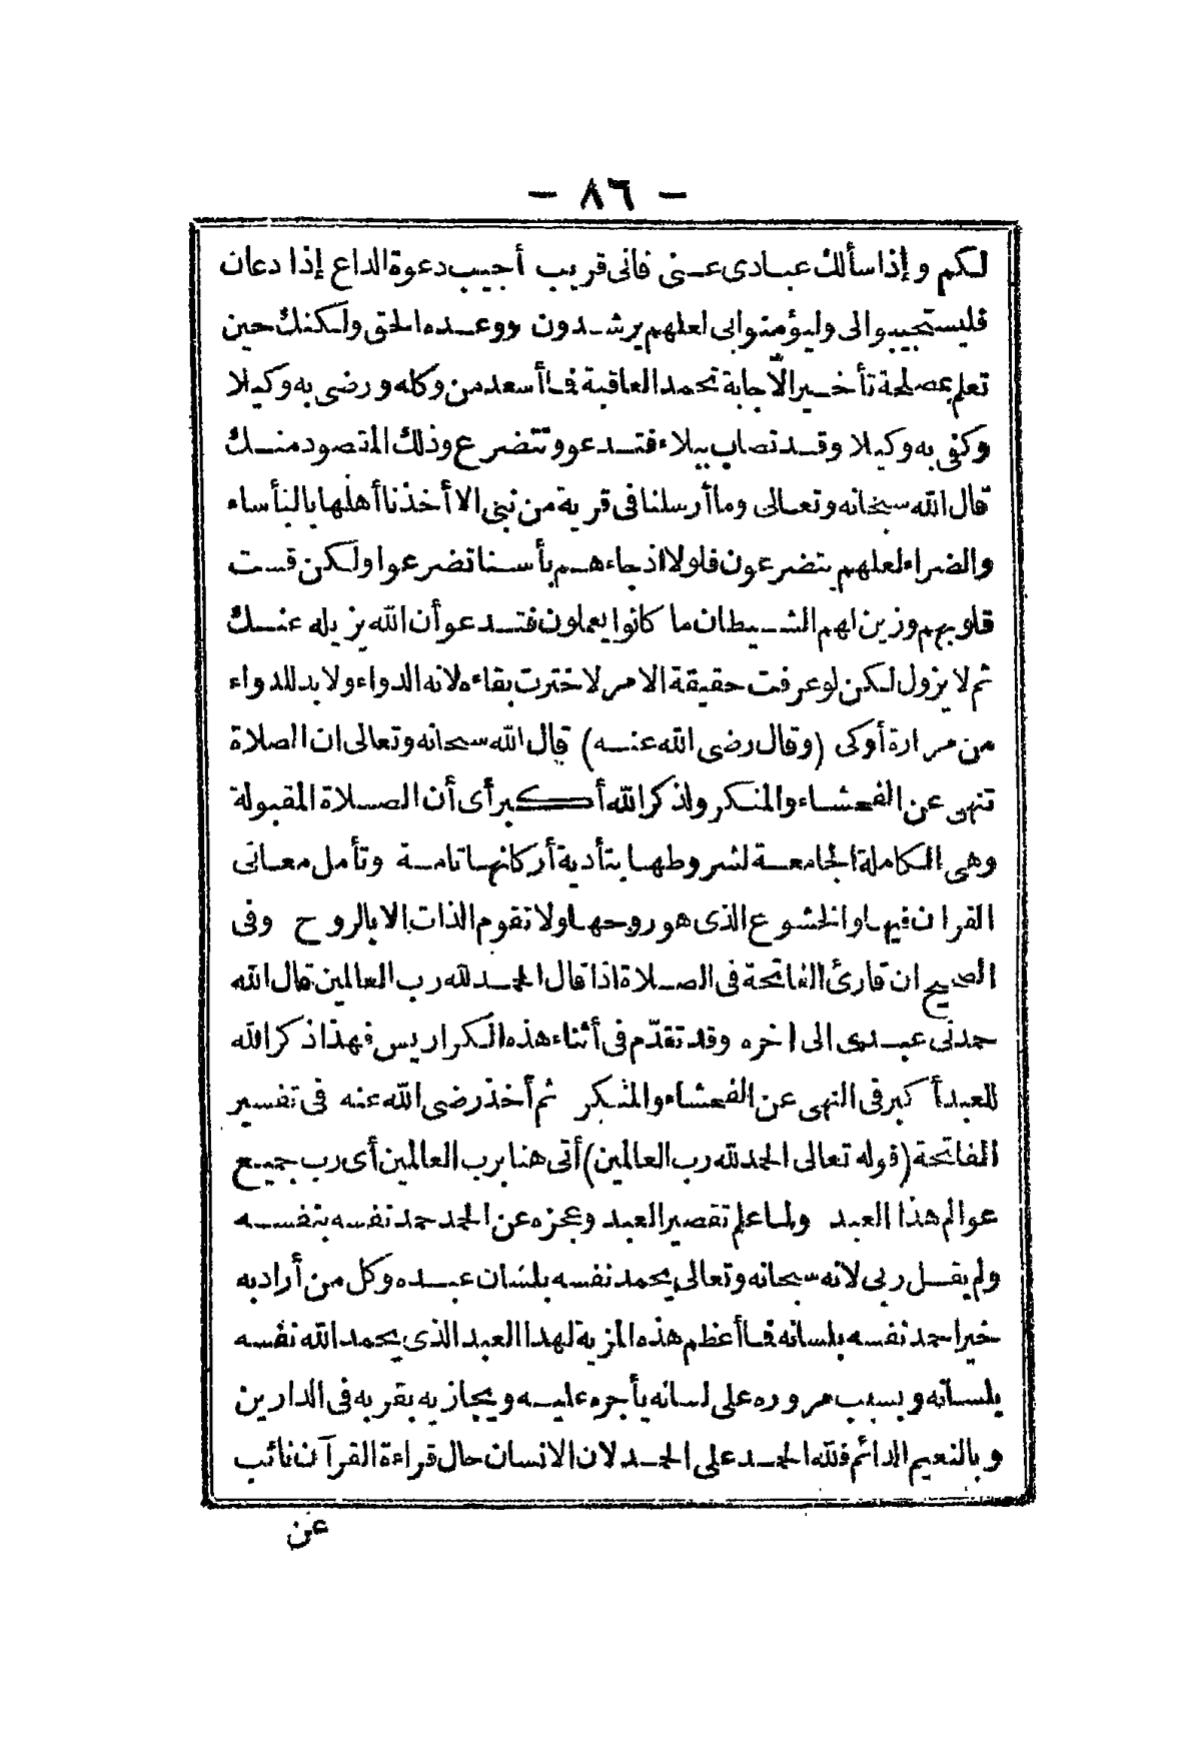 — ٨٦ —
لكم وإذا سألك عبادى عنى فانى قريب أجيب دعوة الداع إذا دعان
فليستجيبوا لى وليؤمنوا بى لعلهم يرشدون ووعده الحق ولكنك حين
تعلم بمصلحة تأخير الاجابة تحمد العاقبة فما أسعد من وكله ورضى به وكيلا
وكفى به وكيلا وقد تصاب ببلاء فتدعو وتتضرع وذلك المقصود منك
قال الله سبحانه وتعالى وما أرسلنا فى قرية من نبى الا أخذنا أهلها بالبأساء
والضراء لعلهم يتضرعون فلولا اذ جاءهم بأسنا تضرعوا ولكن قست
قلوبهم وزين لهم الشيطان ما كانوا يعملون فتدعو أن الله يزيله عنك
ثم لا يزول لكن لو عرفت حقيقة الامر لاخترت بقاءه لانه الدواء ولا بد للدواء
من مرارة أو كى (وقال رضى الله عنه) قال الله سبحانه وتعالى ان الصلاة
تنهى عن الفحشاء والمنكر ولذكر الله أكبر أى أن الصلاة المقبولة
وهى الكاملة الجامعة لشروطها بتأدية أركانها تامة وتأمل معانى
القران فيها والخشوع الذى هو روحها ولا تقوم الذات الا بالروح وفى
الصحيح ان قارئ الفاتحة فى الصلاة اذا قال الحمد لله رب العالمين قال الله
حمدنى عبدى الى اخره وقد تقدّم فى أثناء هذه الكراريس فهذا ذكر الله
للعبد أكبر فى النهى عن الفحشاء والمنكر ثم أخذ رضى الله عنه فى تفسير
الفاتحة (قوله تعالى الحمد لله رب العالمين) أتى هنا برب العالمين أى رب جميع
عوالم هذا العبد ولما علم تقصير العبد وعجزه عن الحمد حمد نفسه بنفسه
ولم يقل ربى لانه سبحانه وتعالى يحمد نفسه بلسان عبده وكل من أراد به
خيرا حمد نفسه بلسانه فما أعظم هذه المزية لهذا العبد الذى يحمد الله نفسه
بلسانه وبسبب مروره على لسانه يأجره عليه ويجازيه بقربه فى الدارين
وبالنعيم الدائم فلله الحمد على الحمد لان الانسان حال قراءة القرآن نائب
عن